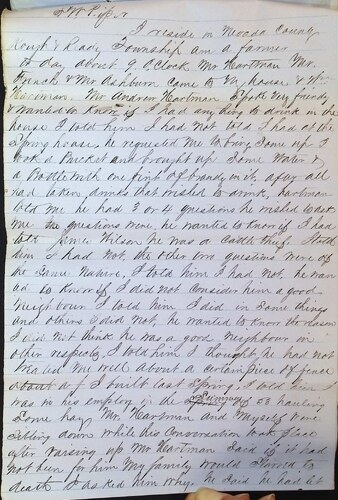 W Pyfer
I reside in Nevada County
Rough & Ready Township am a farmer
to day about 9 O Clock Mr Hartman Mr.
French & Mr Ashburn came to my house & Wm
Hartman. Mr Anderson Hartman Spoke very friendly
& wanted to know if I had any thing to drink in the
house I told him I had not told I had at the
Spring house, he requested me to bring Some up I
took a Bucket and brought up Some Water &
a Bottle with one pint of brandy in it, after all
had taken drinks that wished to drink, hartman
told me he had 3 or 4 questions he wished to ask
me the questions were, he wanted to know if I had
told James Wilson he was a Cattle thief. I told
him I had not, the other two questions were of
the Same Nature, I told him I had not, he wan
ted to know if I did not Consider him a good
Neighbour I told him I did in Some things
and others I did not, he wanted to know the reason
I did not think he was a good Neighbour in
other respects, I told him I thought he had not
treated me well about a certain piece of fence
about a I built last Spring, I told him I
was in his employ in the Summer of 58 hauling
Some hay, Mr. Hartman and Myself were
Sitting down while this Conversation took place
after raising up Mr Hartman Said if it had
not been for him My family would Starved to
death I asked him Why. he Said he had let